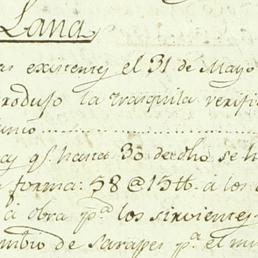 Lana
as existentes el 31 de Mayo
rodujo la trasquila verifi
unio
ay qe. hasta 30 de dho se h
forma: 58 @ 15 tt. á los
á obra pa. los sirvientes
mbio de sarapes pa. el mi